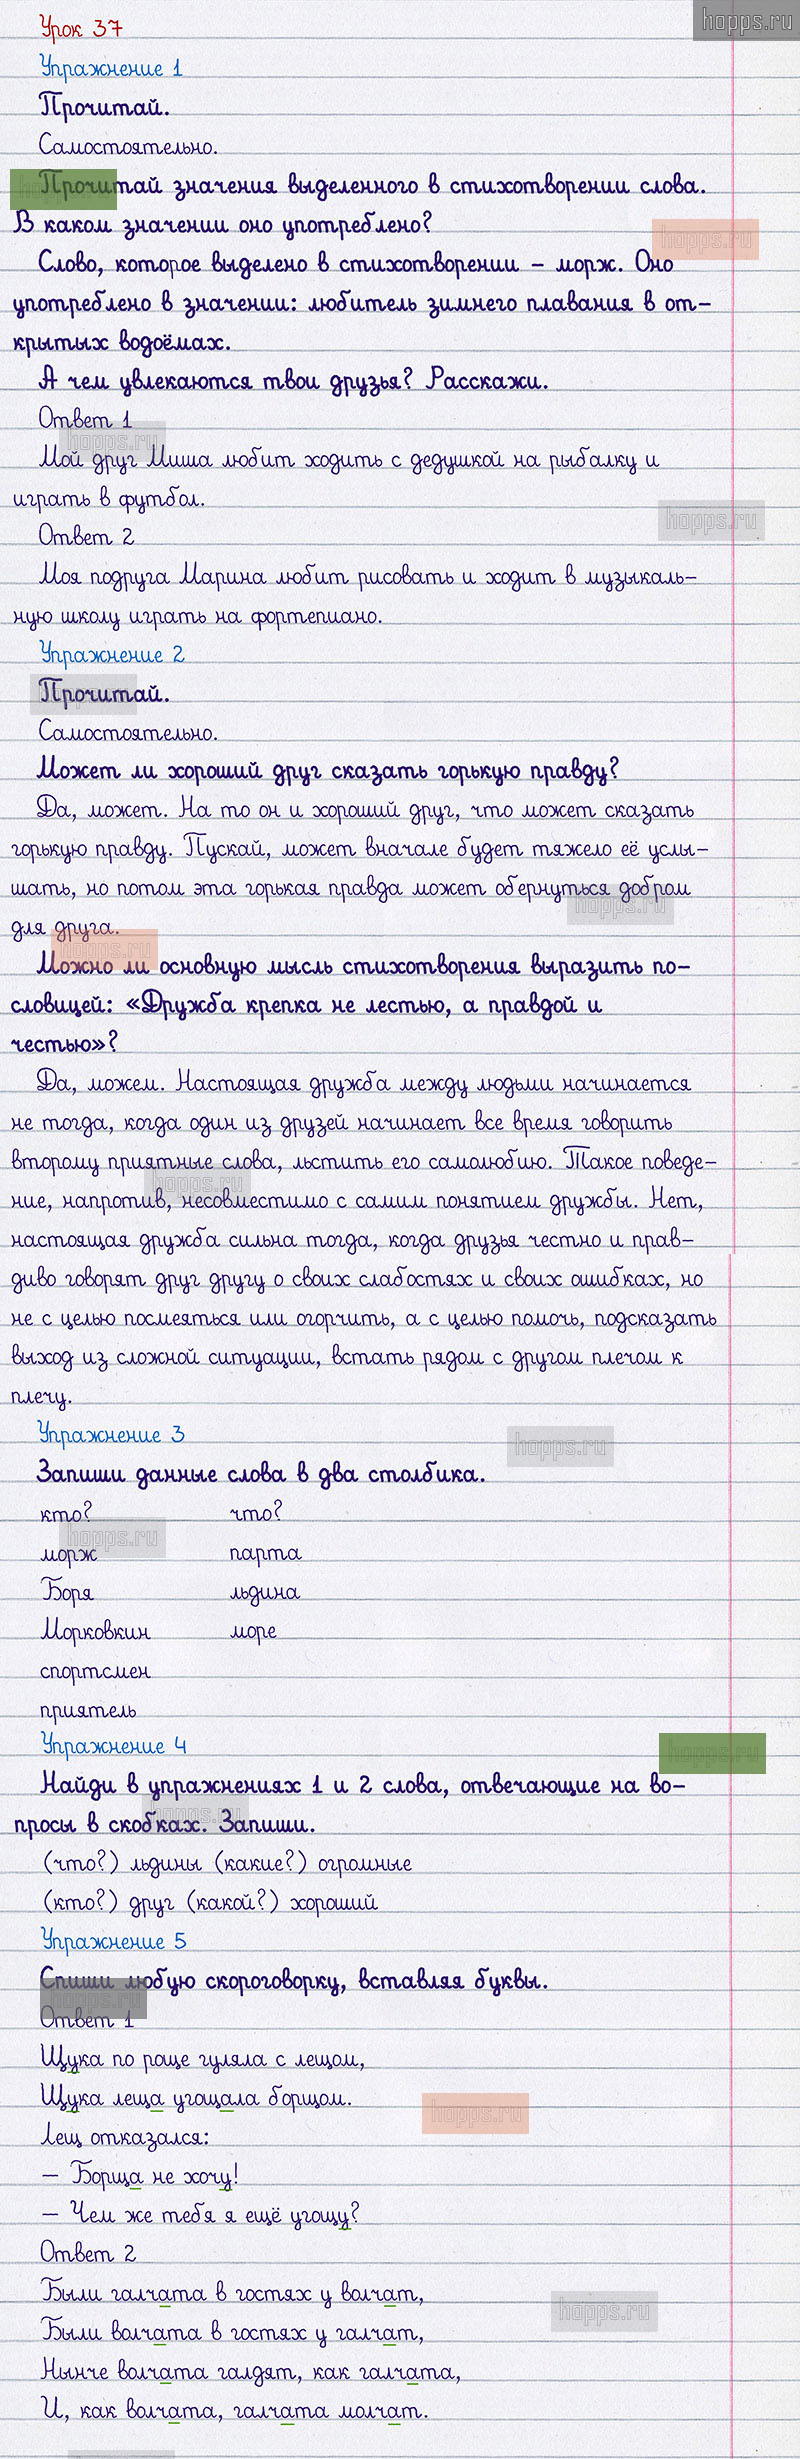 hopps.ru
Урок 37
Упражнение 1
Прочитай.
Самостоятельно.
Прочитай значения выделенного в стихотворении слова.
В каком значении оно употреблено?
hopps.ru
Слово, которое выделено в стихотворении – морж. Оно
употреблено в значении: любитель зимнего плавания в от-
крытых водоёмах.
А чем увлекаются твои друзья? Расскажи.
Ответ 1
hopps.ru
Мой друг Миша любит ходить с дедушкой на рыбалку и
играть в футбол.
hopps.ru
Ответ 2
Моя подруга Марина любит рисовать и ходит в музыкаль-
ную школу играть на фортепиано.
Упражнение 2
Прочитай.
Самостоятельно.
Может ли хороший друг сказать горькую правду?
Да, может. На то он и хороший друг, что может сказать
горькую правду. Пускай, может вначале будет тяжело её услы-
шать, но потом эта горькая правда может обернуться добром
hopps.ru
для друга.
hopps.ru
Можно ли основную мысль стихотворения выразить по-
словицей: «Дружба крепка не лестью, а правдой и
честью»?
Да, можем. Настоящая дружба между людьми начинается
не тогда, когда один из друзей начинает все время говорить
второму приятные слова, льстить его самолюбию. Такое поведе-
hopps.ru
ние, напротив, несовместимо с самим понятием дружбы. Нет,
настоящая дружба сильна тогда, когда друзья честно и прав-
диво говорят друг другу о своих слабостях и своих ошибках, но
не с целью посмеяться или огорчить, а с целью помочь, подсказать
выход из сложной ситуации, встать рядом с другом плечом к
плечу.
Упражнение 3
hopps.ru
Запиши данные слова в два столбика.
кто? что?
hopps.ru
морж парта
Боря льдина
Морковкин море
спортсмен
приятель
Упражнение 4
hopps.ru
Найди в упражнениях 1 и 2 слова, отвечающие на во-
hopps.ru
просы в скобках. Запиши.
(что?) льдины (какие?) огромные
(кто?) друг (какой?) хороший
Упражнение 5
Спиши любую скороговорку, вставляя буквы.
hopps.ru
Ответ 1
Щука по роще гуляла с лещом,
Щука леща угощала борщом.
hopps.ru
Лещ отказался:
– Борща не хочу!
– Чем же тебя я ещё угощу?
Ответ 2
Были галчата в гостях у волчат,
hopps.ru
Были волчата в гостях у галчат,
Нынче волчата галдят, как галчата,
И, как волчата, галчата молчат.